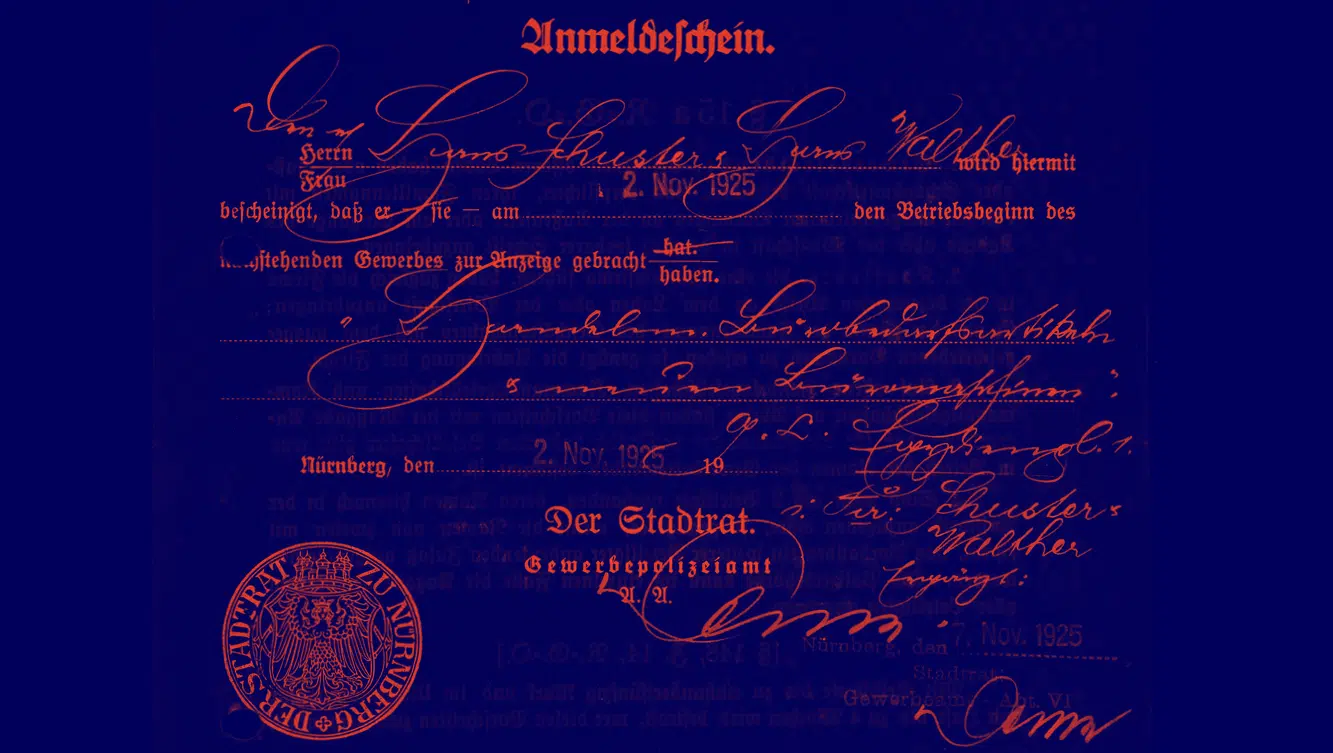 Anmeldeschein.
Den
Herrn Hans Schuster & Hans Walther wird hiermit
Frau
bescheinigt, daß er — sie — am 2. Nov. 1925 den Betriebsbeginn des
nachstehenden Gewerbes zur Anzeige gebracht hat.
haben.
" Handel m. Bürobedarfsartikeln
& neuen Büromaschinen "
g. L.
Nürnberg, den 2. Nov. 1925 19
i. Fir: Schuster &
Walther
Der Stadtrat.
Gewerbepolizeiamt
Ergänzt:
A. A.
Nürnberg, den 7. Nov. 1925
Stadtrat
Gewerbeamt Abt. VI
DER STADTRAT ZU NÜRNBERG